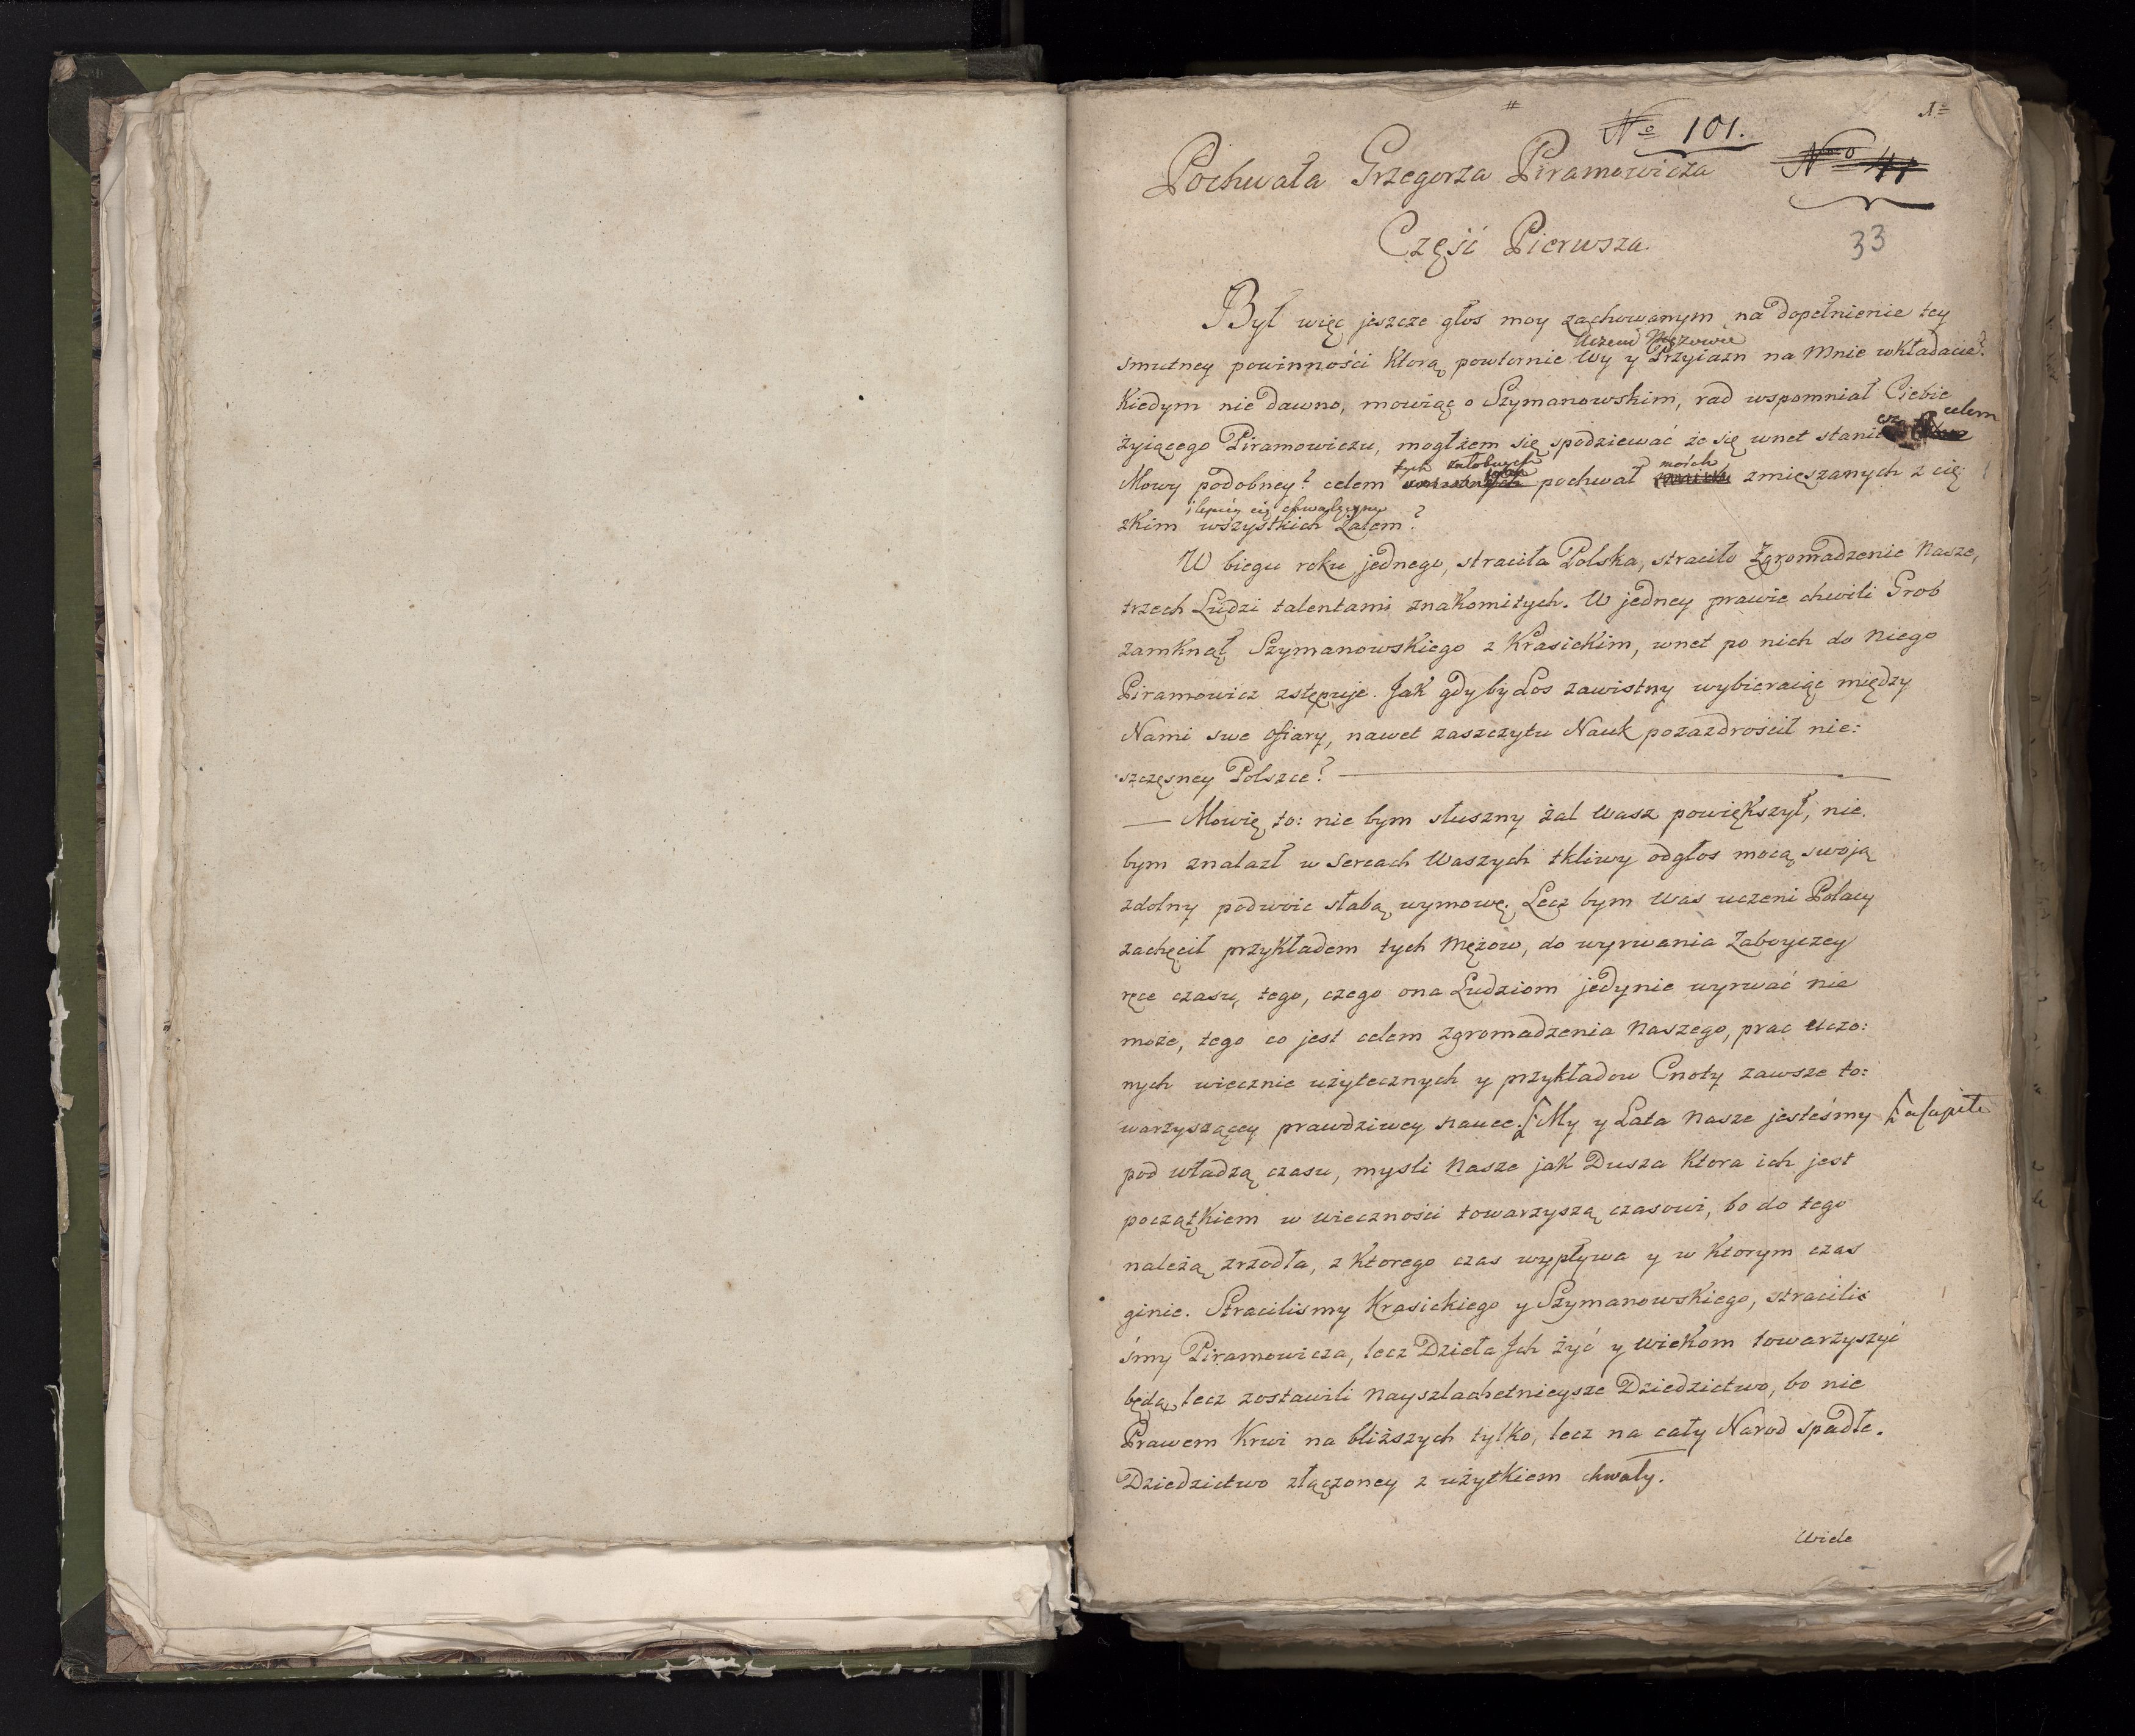 1º
#
Nº 101.
Pochwała Grzegorza Piramowicza
Nº 41
Część Pierwsza
33
Był więc jeszcze głos moy zachowanym na dopełnienie tey
Uczeni Mężowie
smutney powinności którą powtornie Wy y Przyiazn na Mnie wkładacie?
Kiedym nie dawno, mowiąc o Szymanowskim, rad wspomniał Ciebie
celem
żyiącego Piramowiczu, mogłżem się spodziewać że się wnet stanie
tych żałobnych moich
Mowy podobney? celem pochwał zmięszanych z cię:
i lepiéy cię chwalącym
zkim wszystkich żalem?
W biegu roku jednego, straciła Polska, straciło Zgromadzenie Nasze,
trzech Ludzi talentami znakomitych. W jedney prawie chwili Grob
zamknął Szymanowskiego z Krasickim, wnet po nich do niego
Piramowicz zstępuje. Jak gdyby Los zawistny wybieraiąc między
Nami swe ofiary, nawet zaszczytu Nauk pozazdrościł nie:
szczęsney Polszce?
— Mowię to: nie bym słuszny żal Wasz powiększył, nie
bym znalazł w Sercach Waszych tkliwy odgłos mocą swoją
zdolny podwoic słabą wymowę. Lecz bym Was uczeni Polacy
zachęcił przykładem tych Mężow, do wyrwania Zaboyczey
ręce czasu, tego, czego ona Ludziom jedynie wyrwać nie
może, tego co jest celem Zgromadzenia Naszego, prac Uczo:
nych wiecznie użytecznych y przykładow Cnoty zawsze to:
warzyszącey prawdziwey nauce. [My y Lata Nasze jesteśmy [a capite
pod władzą czasu, mysli Nasze jak Dusza ktora ich jest
początkiem w wieczności towarzyszą czasowi, bo do tego
należą zrzodła, z ktorego czas wypływa y w ktorym czas
ginie. Stracilismy Krasickiego y Szymanowskiego, stracili:
śmy Piramowicza, lecz Dzieła Ich żyć y wiekom towarzyszyć
będą, lecz zostawili nayszlachetnieysze Dziedzictwo, bo nie
Prawem Krwi na bliższych tylko, lecz na cały Narod spadłe.
Dziedzictwo złączoney z użytkiem chwały.
Wiele